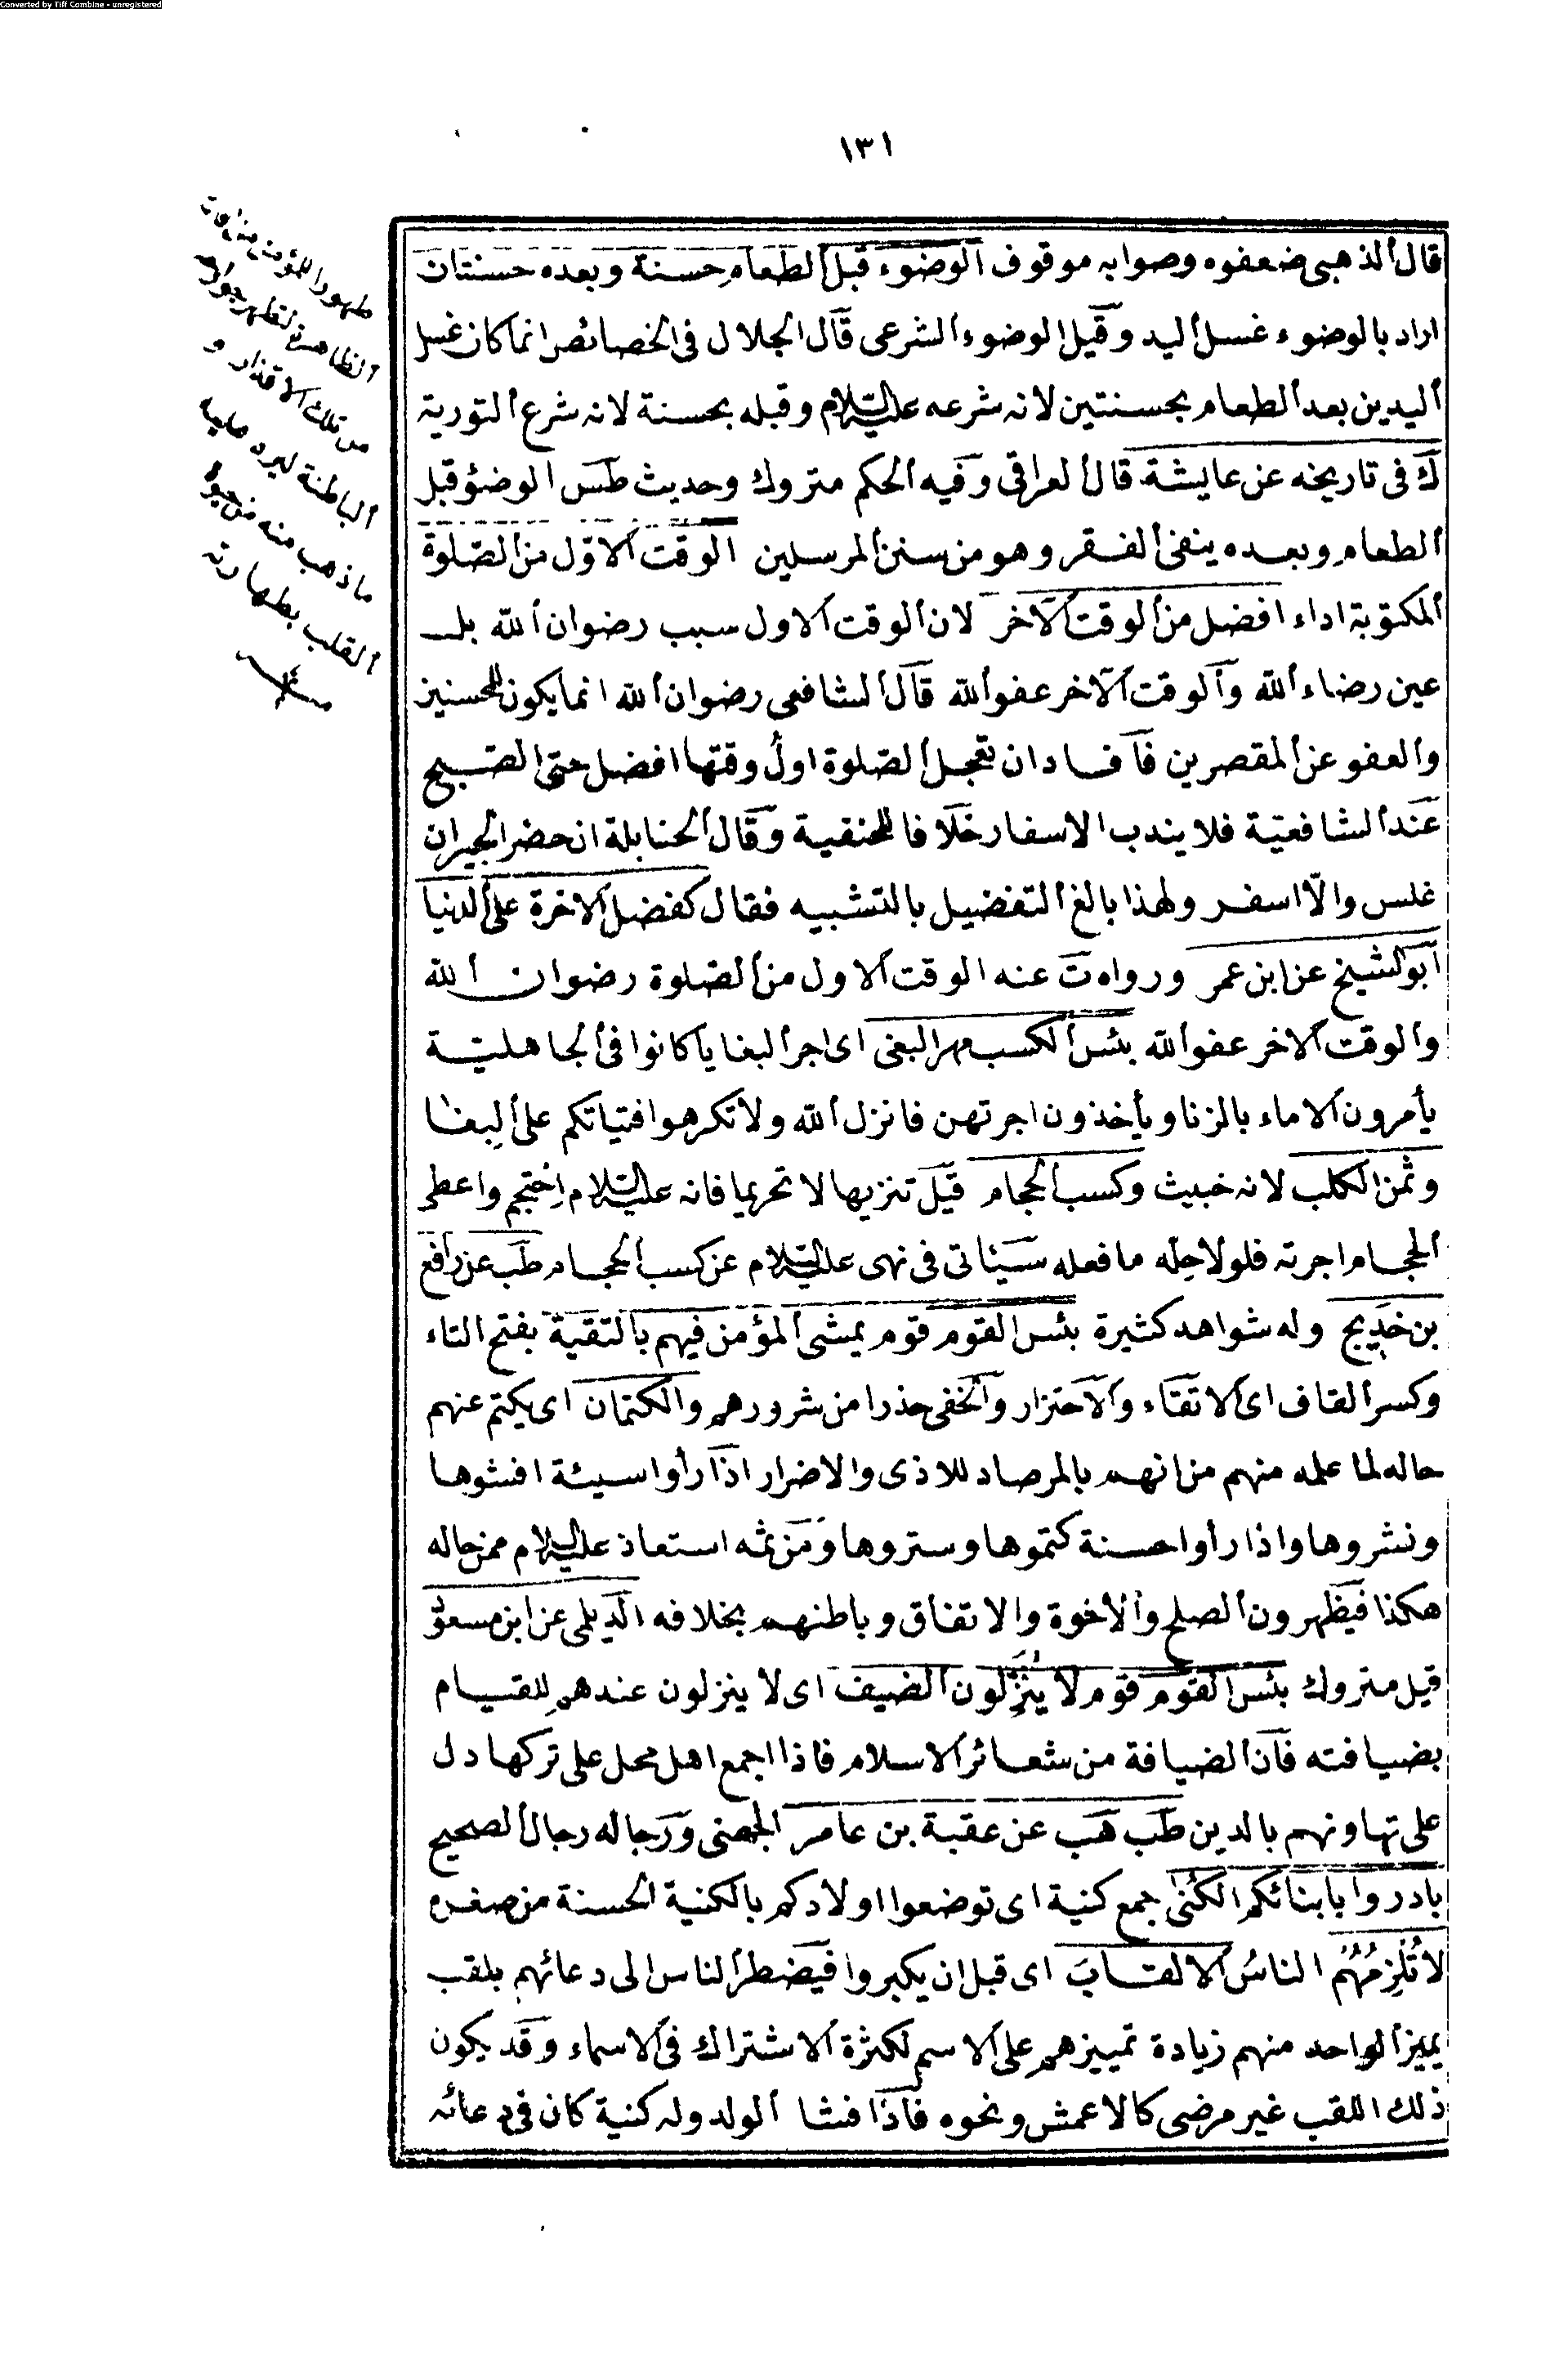 Converted by Tiff Combine - unregistered
١٣١
قال الذهبى ضعفوه وصوابه موقوف الوضوء قبل الطعام حسنة وبعده حسنتان
اراد بالوضوء غسل اليد وقيل الوضوء الشرعى قال الجلال فى الخصائص انما كان غسل
اليدين بعد الطعام بحسنتين لانه شرعه عليه السلام وقبله بحسنة لانه شرع التورية
ك فى تاريخه عن عايشة قال العراقى وفيه الحكم متروك وحديث طس الوضؤ قبل
الطعام وبعده ينفى الفقر وهو من سنن المرسلين الوقت الاول من الصلوة
المكتوبة اداء افضل من الوقت الآخر لان الوقت الاول سبب رضوان الله بل
عين رضاء الله والوقت الآخر عفو الله قال الشافعى رضوان الله انما يكون للمحسنين
والعفو عن المقصرين فآفاد ان تعجل الصلوة اول وقتها افضل حتى الصبح
عند الشافعية فلا يندب الاسفار خلافا للحنفية وقال الحنابلة ان حضر الجيران
غلس والّا اسفر ولهذا بالغ التفضيل بالتشبيه فقال كفضل الاخرة على الدنيا
ابو الشيخ عن ابن عمر ورواه ت عنه الوقت الاول من الصلوة رضوان الله
والوقت الاخر عفو الله بئس الكسب مهر البغى اى اجر البغايا كانوا فى الجاهلية
يأمرون الاماء بالزنا ويأخذون اجرتهن فانزل الله ولا تكرهوا فتياتكم على البغا
وثمن الكلب لانه خبيث وكسب الحجام قيل تنزيها لا تحريما فانه عليه السلام احتجم واعطى
الحجام اجرته فلولا حله ما فعله سيئاتى فى نهى عليه السلام عن كسب الحجام طب عن رافع
بن خديج وله شواهد كثيرة بئس القوم قوم يمشى المؤمن فيهم بالتقية بفتح التاء
وكسر القاف اى الاتقاء والاحتزار والخفى حذرا من شرورهم والكتمان اى يكتم عنهم
حاله لما علمه منهم من انهم بالمرصاد للاذى والاضرار اذا رأوا سيئة افشوها
ونشروها واذا رأوا حسنة كتموها وستروها ومن ثمه استعاذ عليه السلام ممن حاله
هكذا فيظهرون الصلح والاخوة والاتفاق وباطنهم بخلافه الديلمى عن ابن مسعود
قيل متروك بئس القوم قوم لا يُنْزِلون الضيف اى لا ينزلون عندهم للقيام
بضيافته فان الضيافة من شعائر الاسلام فاذا اجمع اهل محل على تركها دل
على تهاونهم بالدين طب هب عن عقبة بن عامر الجهنى ورجاله رجال الصحيح
بادروا بابنائكم الكُنى جمع كنية اى توضعوا اولادكم بالكنية الحسنة من صغره
لا تُلْزِمُهُمُ الناسُ الالقابَ اى قبل ان يكبروا فيضطر الناس الى دعائهم بلقب
يميز الواحد منهم زيادة تمييزهم على الاسم لكثرة الاشتراك فى الاسماء وقد يكون
ذلك اللقب غير مرضى كالاعمش ونحوه فاذا فشا الولد وله كنية كان فى دعائه
طهورا للمؤمن
من تلك الاقذار و
الباطنة ليرد عليه
ما ذهب منه من حيوة
القلب بطهارته